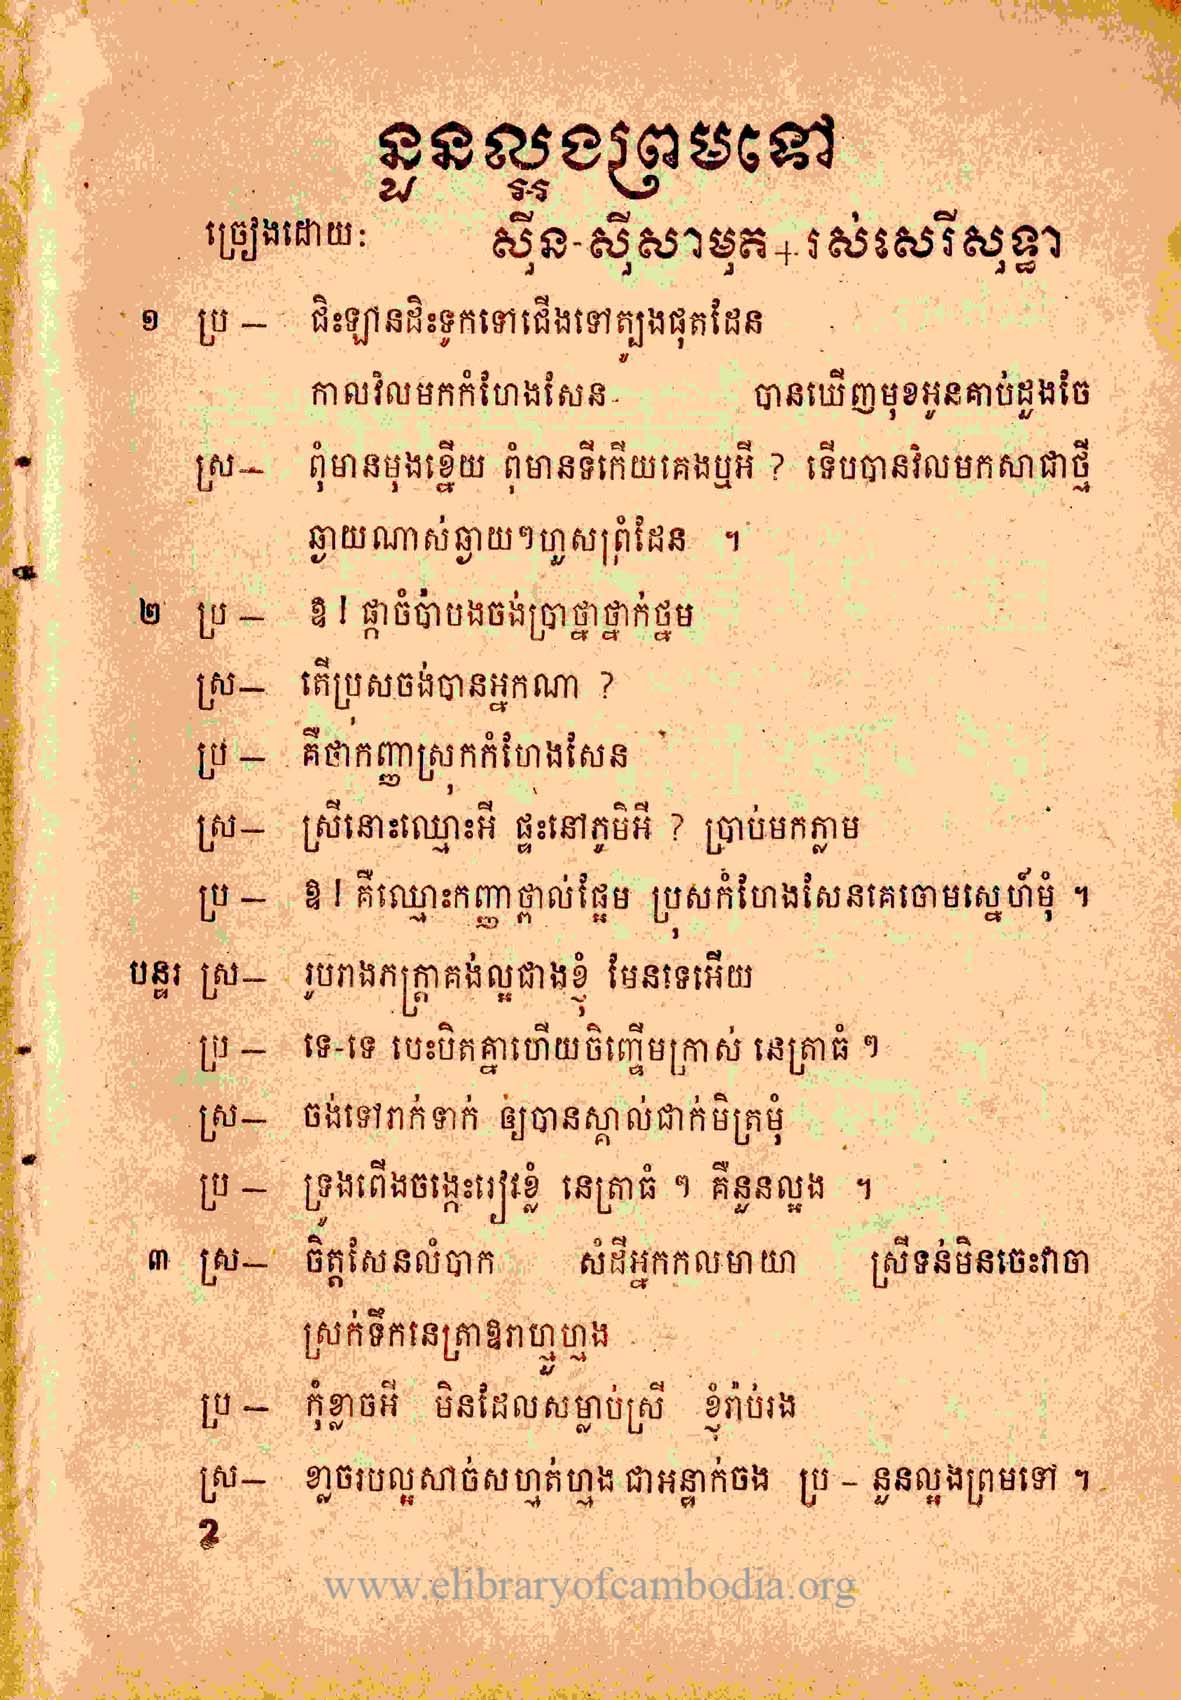 នួនល្អងព្រមទៅ
ច្រៀងដោយ: ស៊ីន-ស៊ីសាមុត + រស់សេរីសុទ្ធា
១ ប្រ — ជិះឡានជិះទូកទៅជើងទៅត្បូងផុតដែន
កាលវិលមកកំហែងសែន បានឃើញមុខអូនគាប់ដួងចៃ
ស្រ — ពុំមានមុងខ្នើយ ពុំមានទីកើយគេងឬអី ? ទើបបានវិលមកសាជាថ្មី
ឆ្ងាយណាស់ឆ្ងាយៗហួសព្រំដែន ។
២ ប្រ — ឱ ! ផ្កាចំប៉ាបងចង់ប្រាថ្នាថ្នាក់ថ្នម
ស្រ — តើប្រុសចង់បានអ្នកណា ?
ប្រ — គឺថាកញ្ញាស្រុកកំហែងសែន
ស្រ — ស្រីនោះឈ្មោះអី ផ្ទះនៅភូមិអី ? ប្រាប់មកភ្លាម
ប្រ — ឱ ! គឺឈ្មោះកញ្ញាថ្ពាល់ផ្អែម ប្រុសកំហែងសែនគេចោមស្នេហ៍មុំ ។
បន្ទរ ស្រ — រូបរាងភក្ត្រាគង់ល្អជាងខ្ញុំ មែនទេអើយ
ប្រ — ទេ-ទេ បេះបិតគ្នាហើយចិញ្ចើមក្រាស់ នេត្រាធំ ៗ
ស្រ — ចង់ទៅរាក់ទាក់ ឲ្យបានស្គាល់ជាក់មិត្រមុំ
ប្រ — ទ្រូងពើងចង្កេះរៀវខ្លំ នេត្រាធំ ៗ គឺនួនល្អង ។
៣ ស្រ — ចិត្តសែនលំបាក សំដីអ្នកកលមាយា ស្រីទន់មិនចេះវាចា
ស្រក់ទឹកនេត្រាឱរាហ្មួហ្មង
ប្រ — កុំខ្លាចអី មិនដែលសម្លាប់ស្រី ខ្ញុំរ៉ាប់រង
ស្រ — ខ្លាចរបល្អសាច់សហ្មត់ហ្មង ជាអន្ទាក់ចង ប្រ – នួនល្អងព្រមទៅ ។
2
www.elibraryofcambodia.org